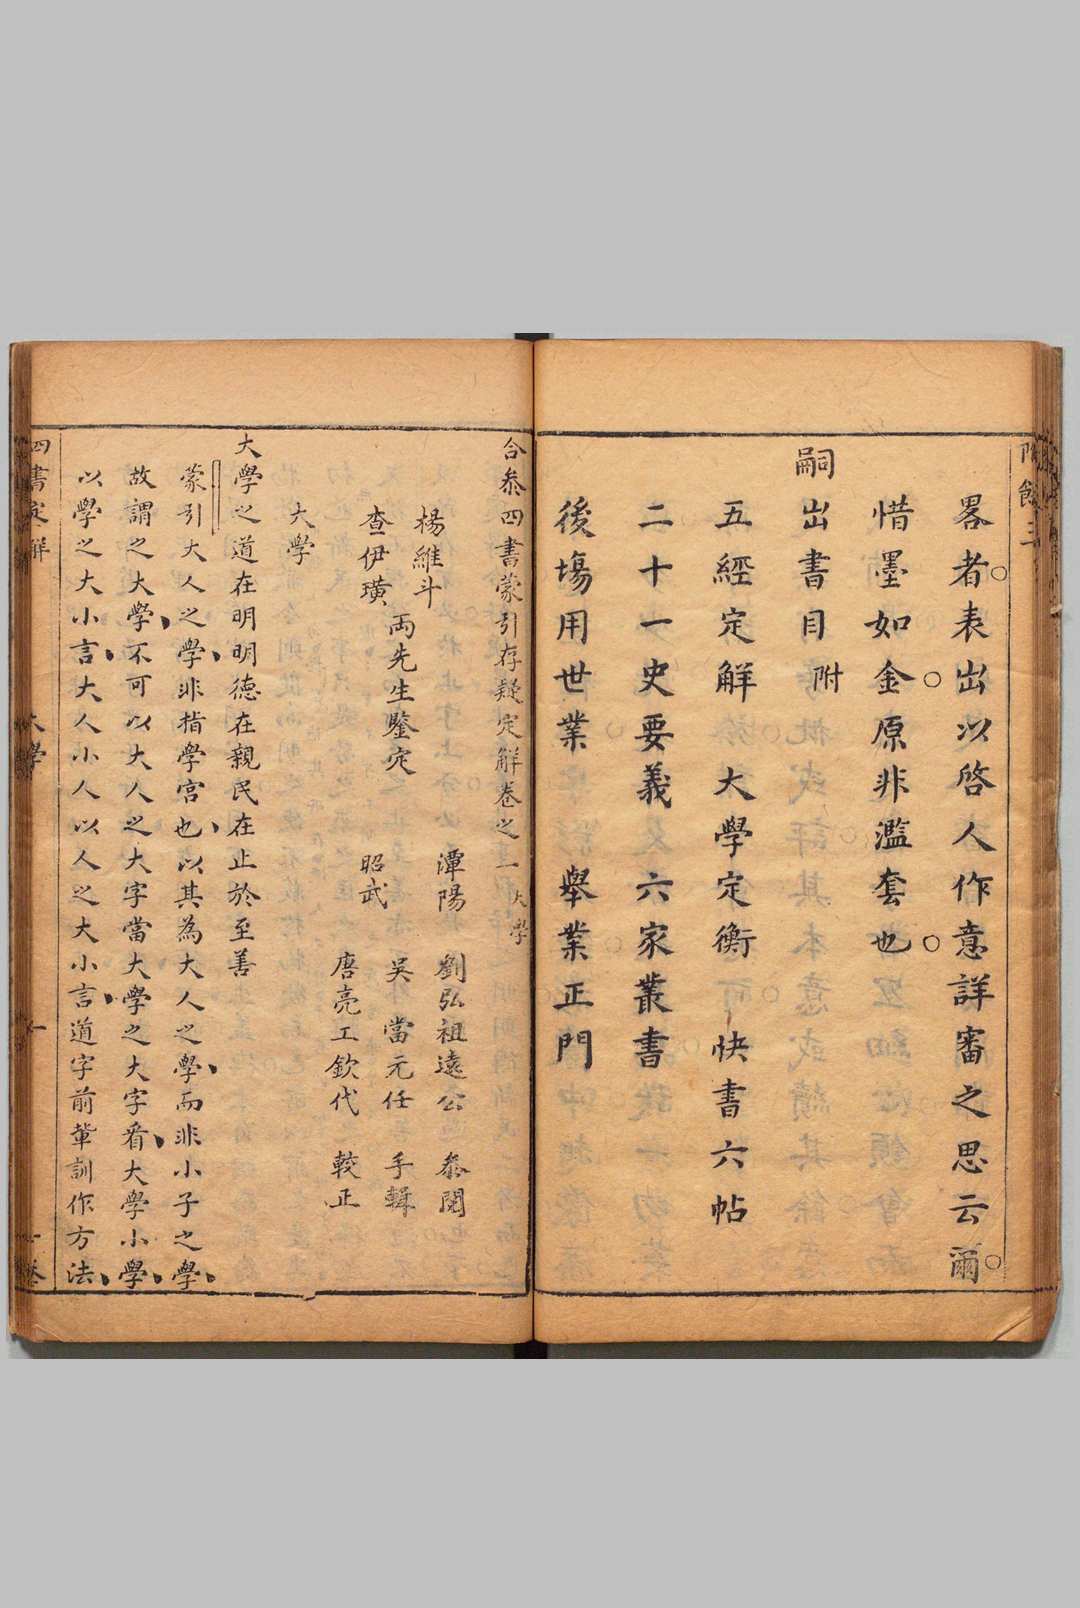 畧者表出以啓人作意詳審之思云爾
惜墨如金原非濫套也
嗣出書目附
五經定解 大學定衡 快書六帖
二十一史要義 六家叢書
後塲用世業 舉業正門
合叅四書蒙引存疑定解卷之一 大學
楊維斗
查伊璜
兩先生鑒定
潭陽 劉弘祖遠公 叅閱
昭武
吳 當元任 手輯
唐亮工欽代 較正
大學
大學之道在明明德在親民在止於至善
蒙引大人之學非指學宮也以其為大人之學而非小子之學
故謂之大學不可以大人之大字當大學之大字看大學小學
以學之大小言大人小人以人之大小言道字前輩訓作方法
四書定解 大學 一 一卷